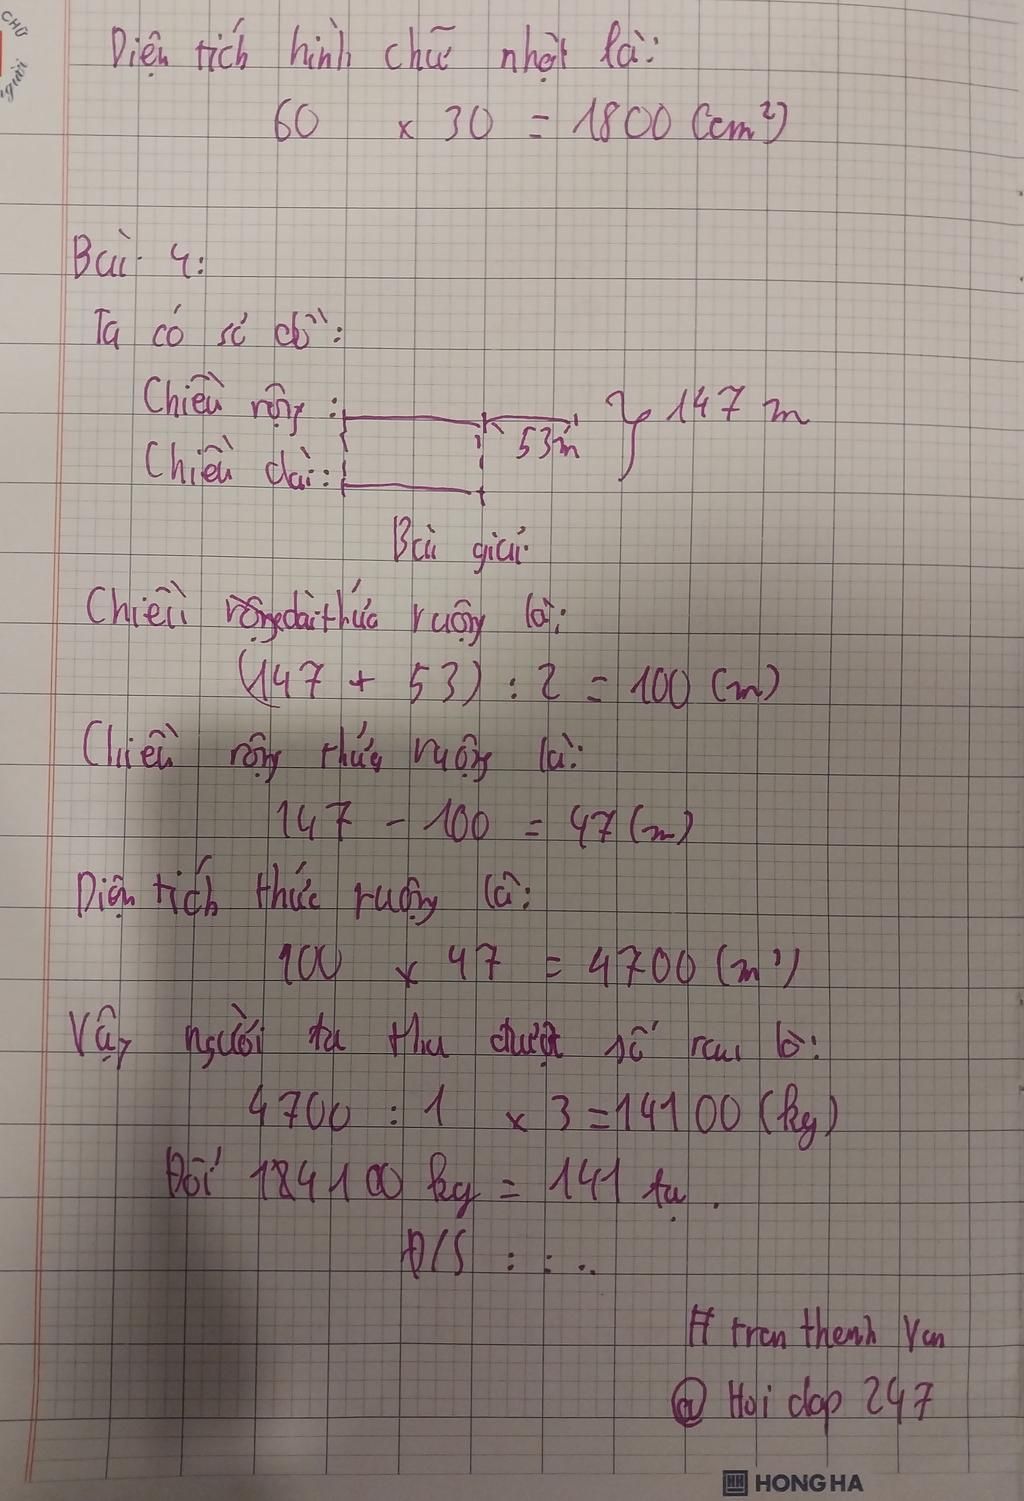 CHỮ
người
Diện tích hình chữ nhật là:
60 x 30 = 1800 (cm²)
Bài 4:
Ta có sơ đồ:
Chiều rộng : 53m } 147 m
Chiều dài :
Bài giải
Chiều dài thửa ruộng là:
(147 + 53) : 2 = 100 (m)
Chiều rộng thửa ruộng là:
147 - 100 = 47 (m)
Diện tích thửa ruộng là:
100 x 47 = 4700 (m²)
Vậy người ta thu được số rau là:
4700 : 1 x 3 = 14100 (kg)
Đổi 14100 kg = 141 tạ.
Đ/S : : ..
# tran thanh Van
@ Hoi dap 247
HH HONG HA